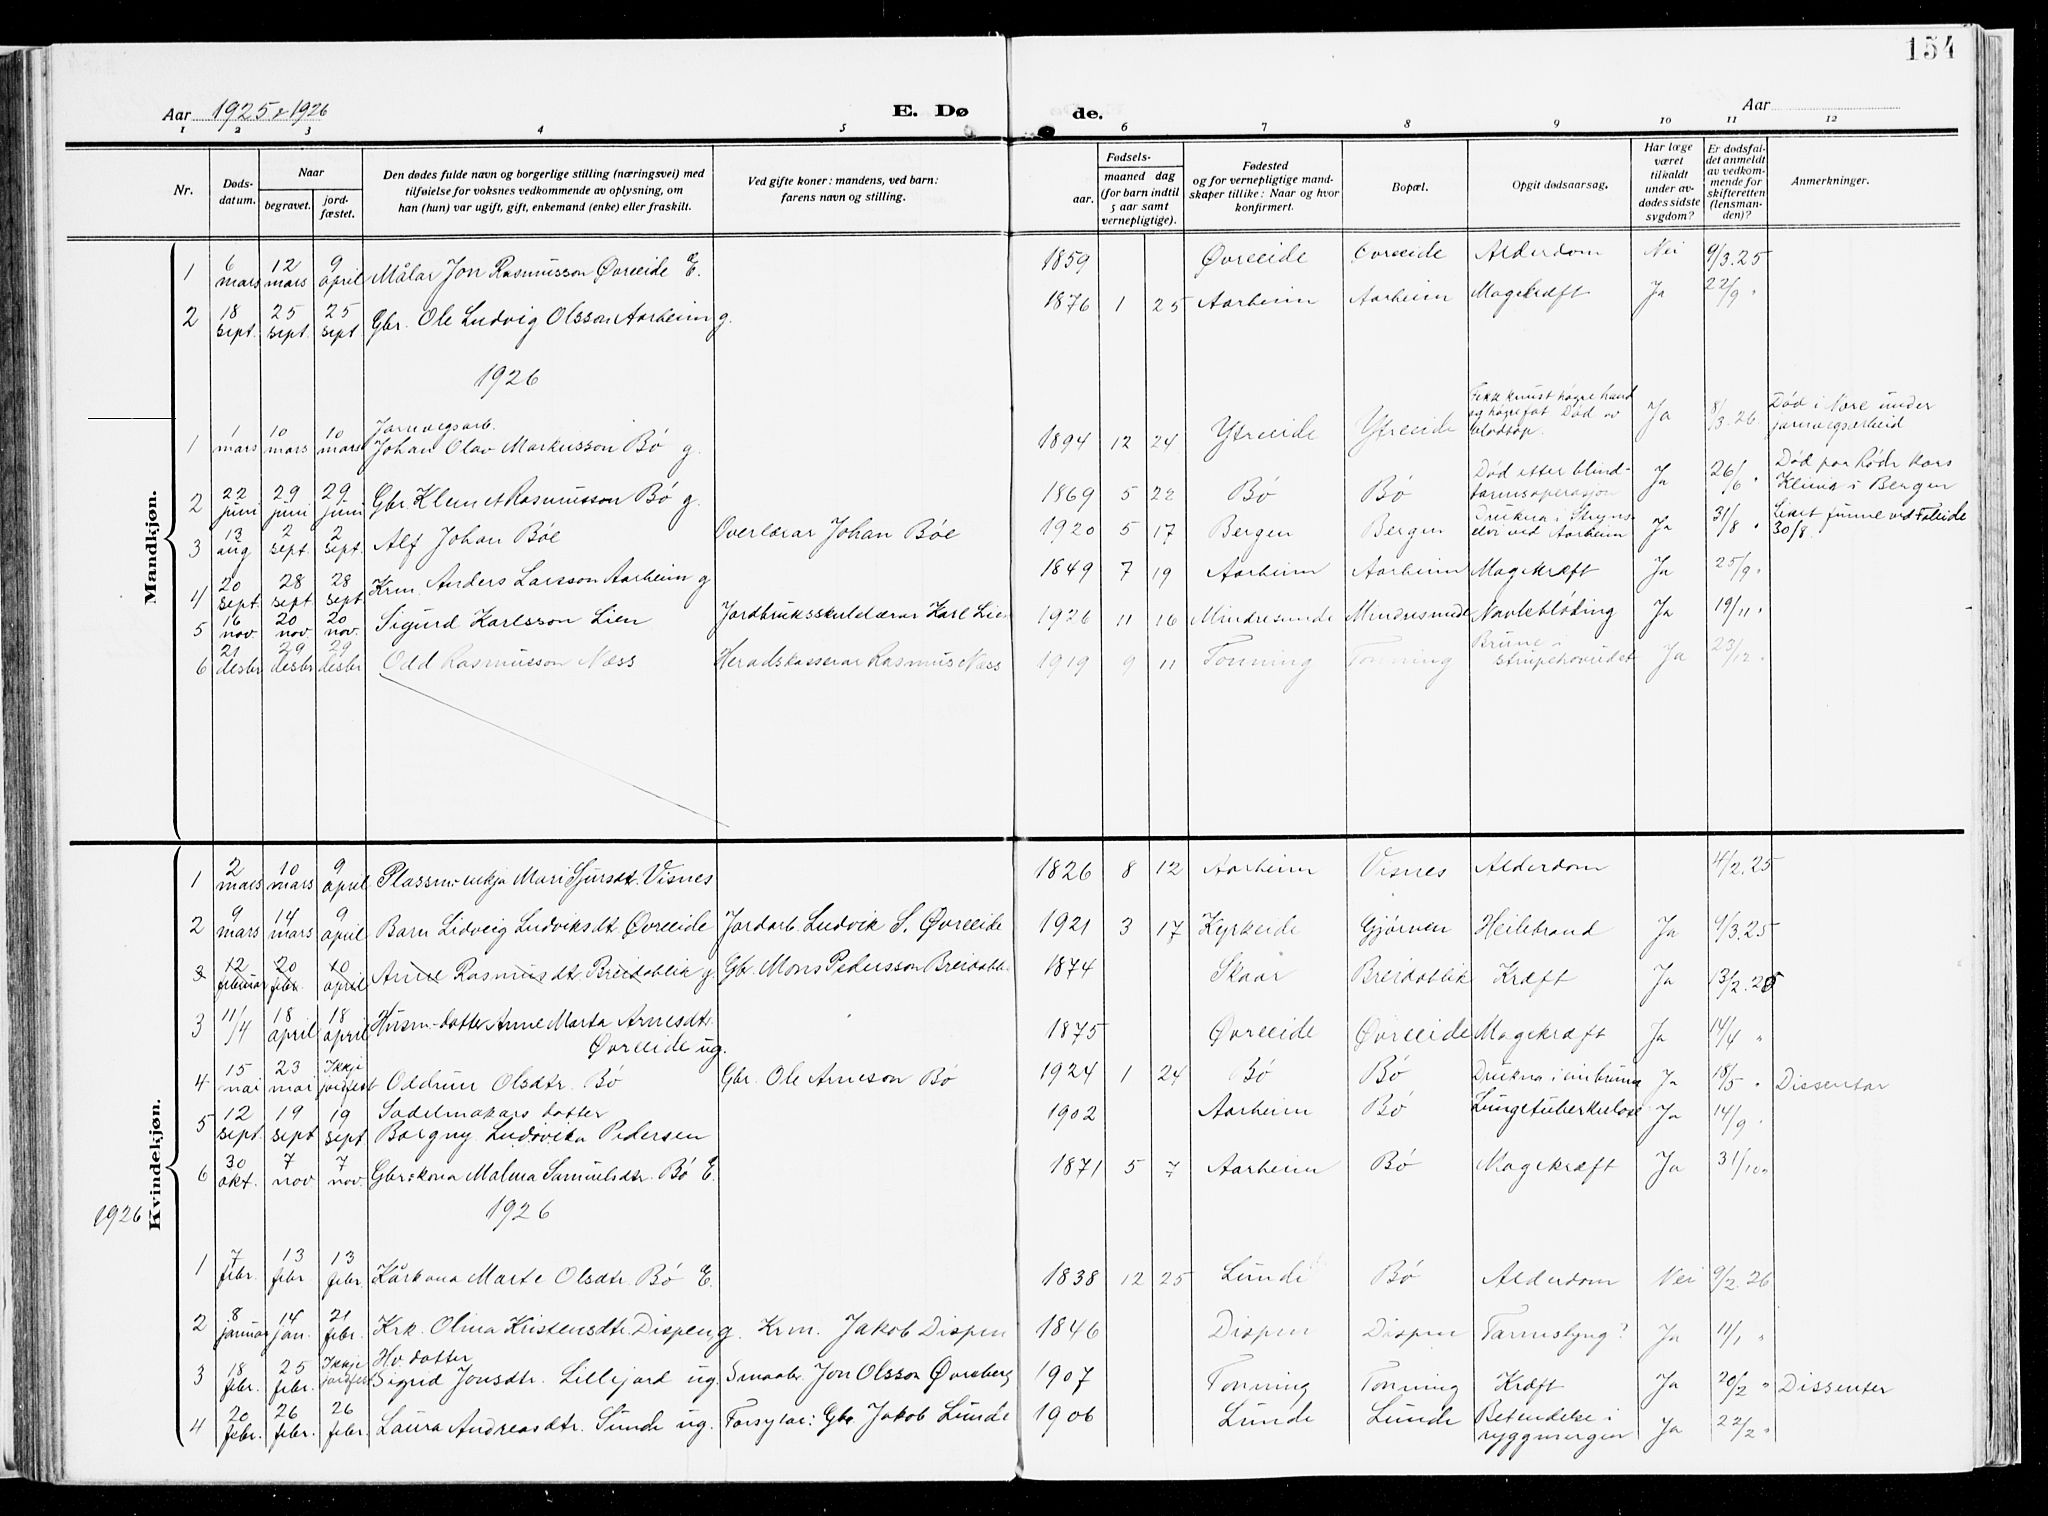 154
Aar 1925 & 1926
E. Dø
de.
Aar
1 2 3 4 5 6 7 8 9 10 11 12
Nr.
Døds-
datum.
Naar
begravet.
jord-
fæstet.
Den dødes fulde navn og borgerlige stilling (næringsvei) med
tilføielse for voksnes vedkommende av oplysning, om
han (hun) var ugift, gift, enkemand (enke) eller fraskilt.
Ved gifte koner: mandens, ved barn:
farens navn og stilling.
Fødsels-
aar.
maaned dag
(for barn indtil
5 aar samt
vernepligtige).
Fødested
og for vernepligtige mand-
skaper tillike: Naar og hvor
konfirmert.
Bopæl.
Opgit dødsaarsag.
Har læge
været
tilkaldt
under av-
dødes sidste
sygdom?
Er dødsfal-
det anmeldt
av vedkom-
mende for
skifteretten
(lensman-
den)?
Anmerkninger.
Mandkjøn.
1 6 mars 12 mars 9 april Målar Jon Rasmusson Øvreeide E. 1859 Øvreeide Øvreeide Alderdom Nei 9/3.25
2 18 sept. 25 sept. 25 sept. Gbr. Ole Ludvig Olsson Aarheim g. 1876 1 25 Aarheim Aarheim Magekræft Ja 22/9 "
1926
1 1 mars 10 mars 10 mars Jarnvegsarb.
Johan Olav Markusson Bø g. 1894 12 24 Ytreeide Ytreeide Fekk knust høgre hand
og høgre fot Død av
blodtap. Ja 8/3.26 Død i Nore under
jarnvegsarbeid
2 22 juni 29 juni 29 juni Gbr. Klemet Rasmusson Bø g. 1869 5 22 Bø Bø Død etter blind-
tarmsoperasjon Ja 26/6 " Død paa Røde Kors
Klinik i Bergen
3 13 aug 2 sept. 2 sept. Alf Johan Bøe Overlærar Johan Bøe 1920 5 17 Bergen Bergen Drukna i Stryns-
elvi ved Aarheim Ja 31/8 " Liket funne ved Faleide
30/8.
4 20 sept. 28 sept 28 sept Krm. Anders Larsson Aarheim g 1849 7 19 Aarheim Aarheim Magekræft Ja 25/9 "
5 16 nov. 20 nov 20 nov. Sigurd Karlsson Lien Jordbruksskulelærar Karl Lien 1926 11 16 Mindresunde Mindresunde Navlebløding Ja 19/11 "
6 21 desbr 29 desbr 29 desbr Odd Rasmusson Næss Heradskasserar Rasmus Næss 1919 9 11 Tonning Tonning Brune i
strupehovudet Ja 23/12 "
Kvindekjøn.
1 2 mars 10 mars 9 april Plassm.-enkja Mari Sjursdt. Visnes 1826 8 12 Aarheim Visnes Alderdom 4/2.25
2 9 mars 14 mars 9 april Barn Lidveig Ludviksdt. Øvreeide Jordarb. Ludvik S. Øvreeide 1921 3 17 Kyrkeide Gjørven Heilebrand Ja 9/3.25
3 12 februar 20 febr. 10 april Anne Rasmusdt. Breidablik g. Gbr. Mons Pedersson Breidabl. 1874 Skaar Breidablik Kræft Ja 13/2.25
3 11/4 18 april 18 april Husm-dotter Anne Marta Arnesdtr.
Øvreeide ug. 1875 Øvreeide Øvreeide Magekræft Ja 14/4 "
4 15 mai 23 mai Ikkje jordfest Oddrun Olsdtr. Bø Gbr. Ole Arneson Bø 1924 1 24 Bø Bø Drukna i ein brunn Ja 18/5 " Dissentar
5 12 sept. 19 sept 19 sept Sadelmakars dotter
Borgny Ludovika Pedersen 1902 Aarheim Bø Lungetuberkulose Ja 14/9 "
6 30 okt. 7 nov 7 nov. Gbr:kona Malena Samuelsdtr. Bø E. 1871 5 7 Aarheim Bø Magekræft Ja 31/10 "
1926
1926
1 7 febr. 13 febr 13 febr Kårkona Marte Olsdtr. Bø E. 1838 12 25 Lunde Bø Alderdom Nei 9/2.26
2 8 januar 14 jan. 21 febr. Krk. Olina Kristensdtr. Dispen g. Krm. Jakob Dispen 1846 Dispen Dispen Tarmslyng? Ja 11/1 "
3 18 febr. 25 febr. Ikkje jordfest Hv. dotter
Sigrid Jonsdtr. Lillejord ug. Smaabr. Jon Olsson Øvreberg 1907 Tonning Tonning Kræft Ja 20/2 " Dissenter
4 20 febr. 26 febr. 26 febr. Laura Andreasdtr. Sunde ug. Forsytar: Gbr. Jakob Lunde 1906 Lunde Lunde Betendelse i
ryggmergen Ja 22/2 "